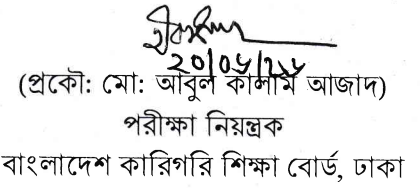 (প্রকৌ: মো: আবুল কালাম আজাদ)
পরীক্ষা নিয়ন্ত্রক
বাংলাদেশ কারিগরি শিক্ষা বোর্ড, ঢাকা